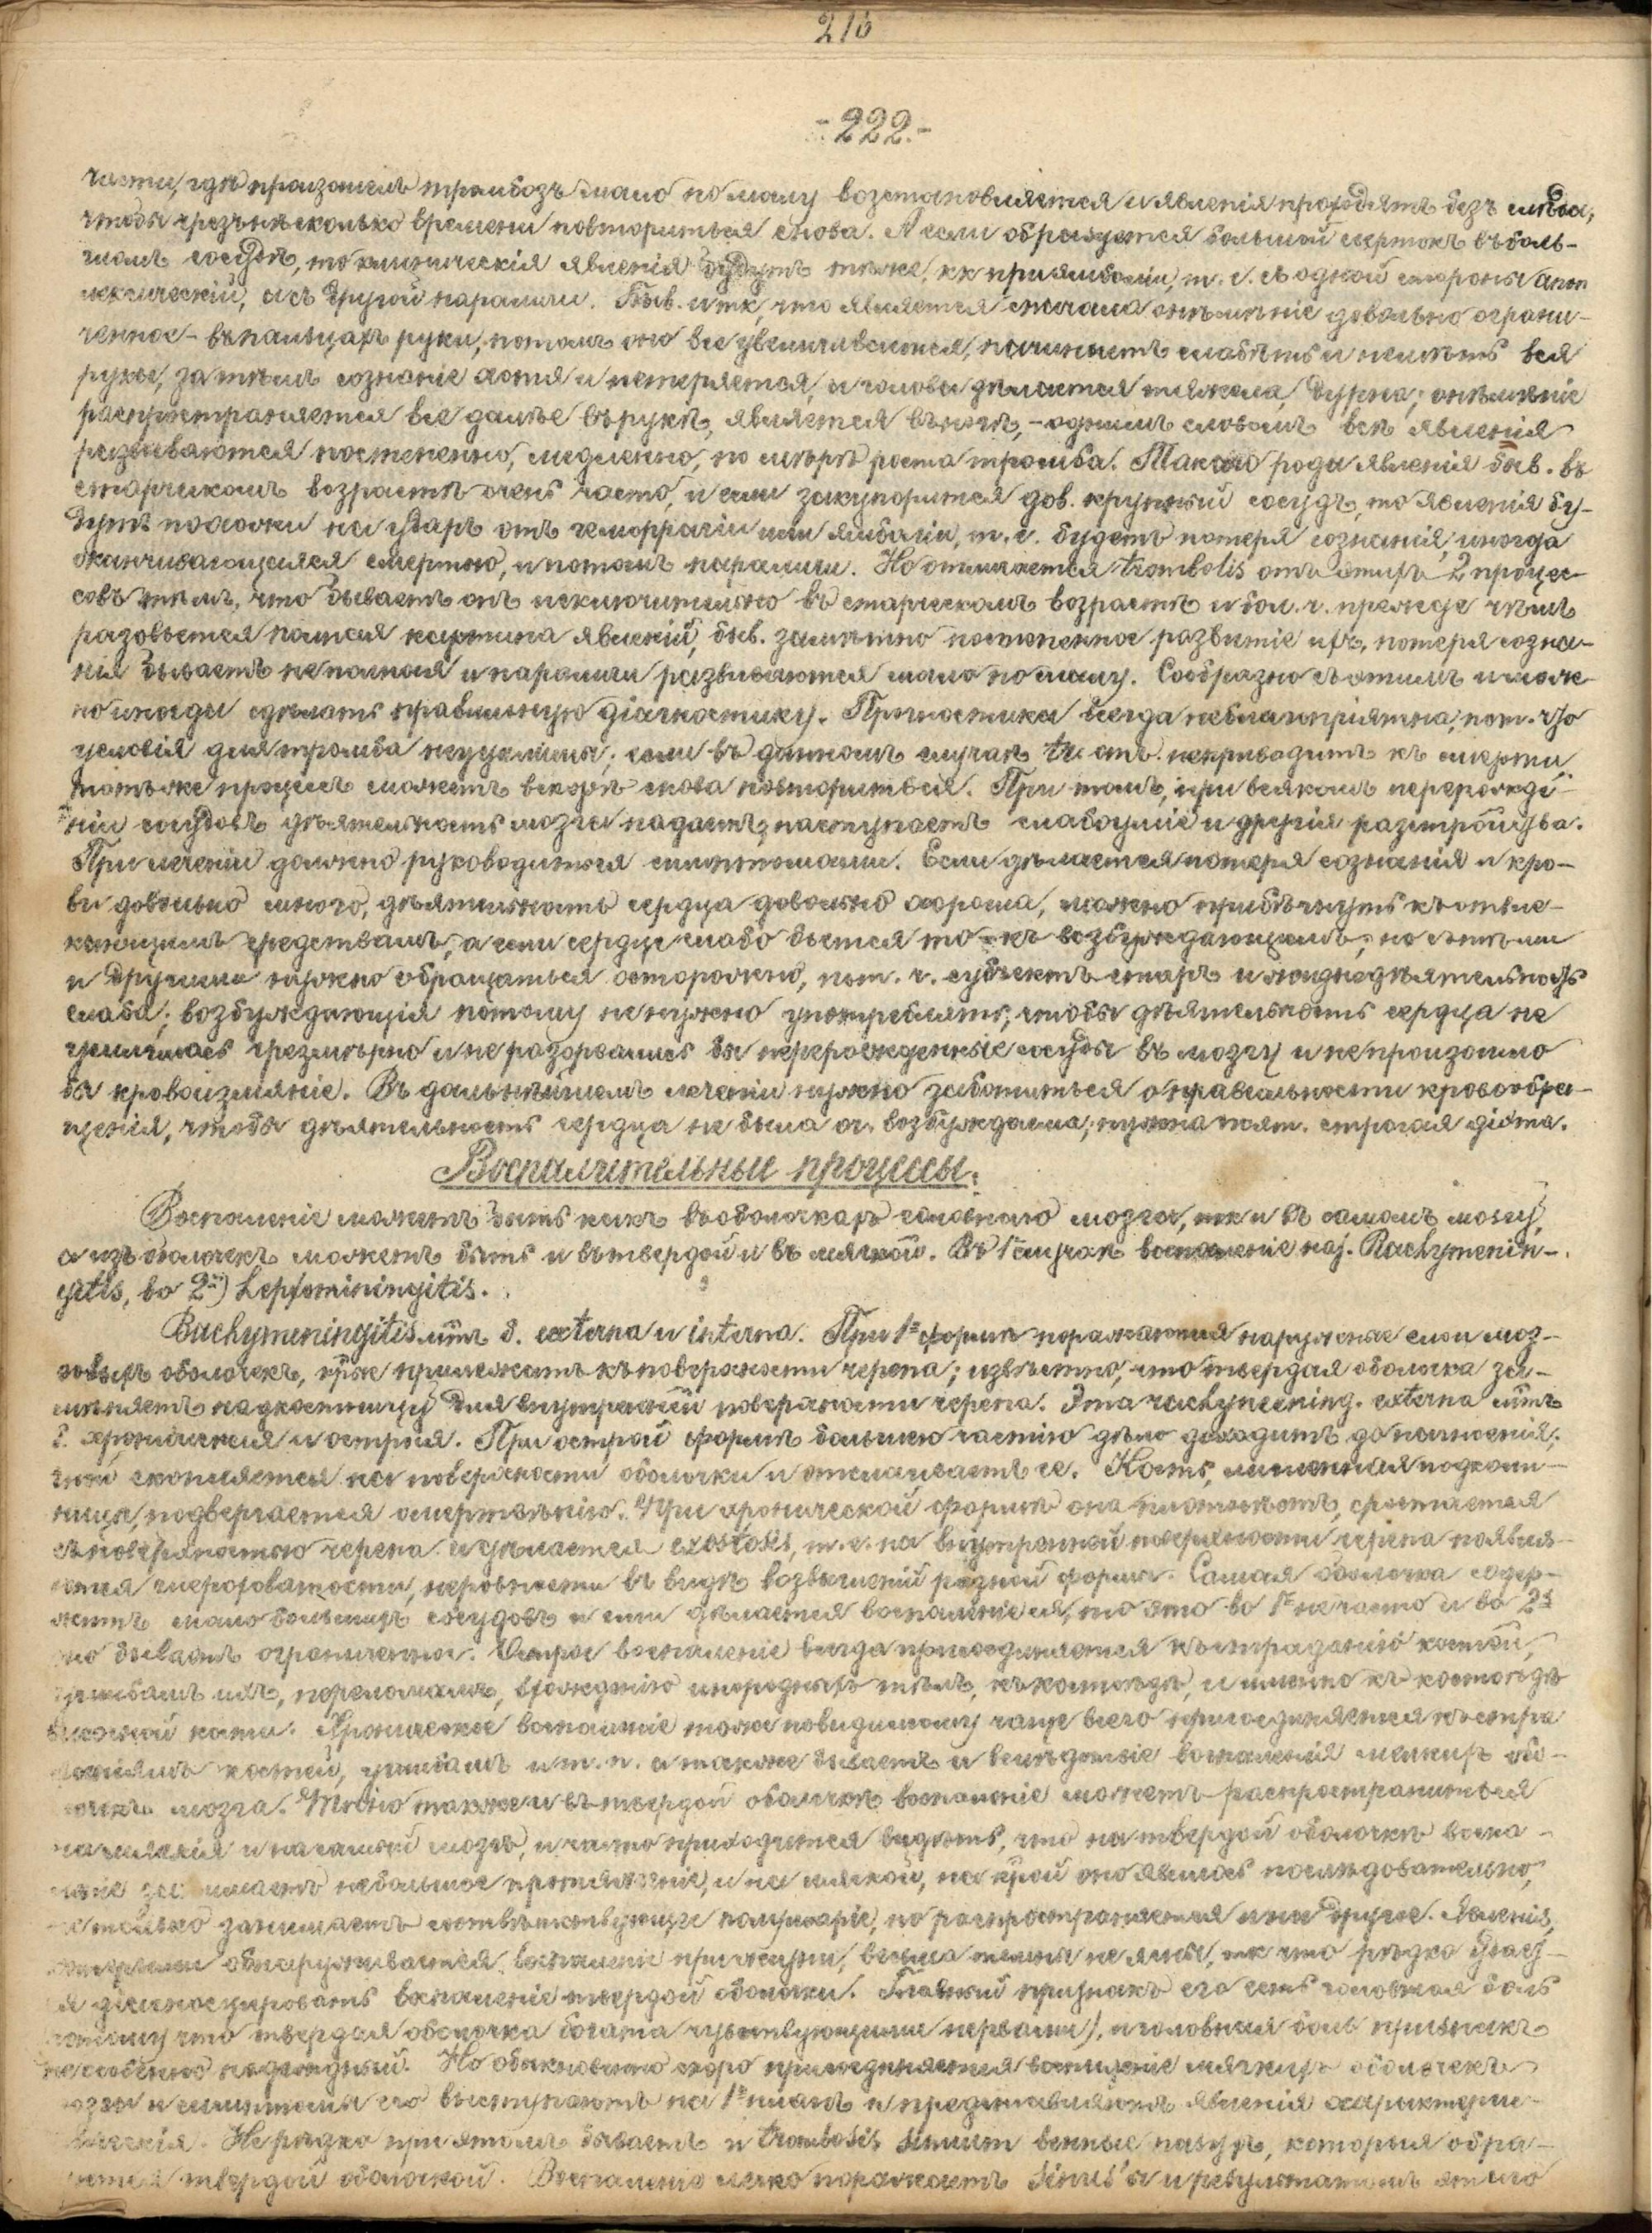 216
-222.-
части, гдѣ произошелъ тромбозъ мало по малу возстановляется и явленія проходятъ безъ слѣда,
чтобы чрезъ нѣсколько времени повториться снова. А если образуется большой свертокъ въ боль-
шомъ сосудѣ, то клиническія явленія будутъ тѣже, кк при эмболіи, т. е. съ одной стороны апоп
лексическій, а съ другой параличи. Быв. и тк, что является сначала онѣмѣніе довольно ограни-
ченное - въ пальцахъ руки, потомъ оно все увеличивается, начинаетъ слабѣть и нѣмѣть вся
рука, затѣмъ сознаніе хотя и не теряется, и голова дѣлается тяжела, дурна; онѣмѣніе
распространяется все далѣе въ рукѣ, является въ ногѣ, - однимъ словомъ всѣ явленія
развиваются постепенно, медленно, по мѣрѣ роста тромба. Такого рода явленія быв. въ
старческомъ возрастѣ очень часто, и если закупорится дов. крупный сосудъ, то явленія бу-
дутъ похожи на ударъ отъ геморрагіи или эмболіи, т. е. будетъ потеря сознанія, иногда
оканчивающаяся смертью, и потомъ параличи. Но отличается trombolis отъ этихъ 2 процес-
совъ тѣмъ, что бываетъ онъ исключительно въ старческомъ возрастѣ и бол. ч. прежде чѣмъ
разовьется полная картина явленій, быв. замѣтно постепенное развитіе ихъ, потеря созна-
нія бываетъ не полная и параличи развиваются мало по малу. Сообразно съ этимъ и мож-
но иногда сдѣлать правильную діагностику. Прогностика всегда неблагопріятна, пот. что
условія для тромба неудалимы; если въ данномъ случаѣ не приводитъ къ смерти,
тотъ же процессъ можетъ вскорѣ снова повториться. При томъ, при всякомъ перерожде-
ніи сосудовъ дѣятельность мозга падаетъ, наступаетъ слабоуміе и другія разстройства.
При леченіи должно руководиться симптомами. Если дѣлается потеря сознанія и кро-
ви довольно много, дѣятельность сердца довольно хороша, можно прибѣгнуть къ отвле-
кающимъ средствамъ, а если сердце слабо бьется то - къ возбуждающимъ; но съ тѣми
и другими нужно обращаться осторожно, пот. ч. субъектъ старъ и жизнедѣятельность
слаба; возбуждающія потому не нужно употреблять, чтобы дѣятельность сердца не
усилилась чрезмѣрно и не разорвались бы перерожденные сосуды въ мозгу и не произошло
бы кровоизліяніе. Въ дальнѣйшемъ леченіи нужно заботиться о правильности кровообра-
щенія, чтобы дѣятельность сердца не была оч. возбуждаема; нужна поэт. строгая діэта.
Воспалительные процессы.
Воспаленіе можетъ быть какъ въ оболочкахъ головнаго мозга, тк и въ самомъ мозгу,
а изъ оболочекъ можетъ быть и въ твердой и въ мягкой. Въ 1 случаѣ воспаленіе наз. Pachymenin-
gitis, во 2ъ) Leptominingitis.
Pachymeningitis мжтъ б. externa и interna. При 1й формѣ поражаются наружные слои моз-
говыхъ оболочекъ, кркые прилежатъ къ поверхности черепа; извѣстно, что твердая оболочка за-
мѣняетъ надкостницу для внутренней поверхности черепа. Эта rachymening. externa мжтъ
б. хроническая и острая. При острой формѣ большею частію дѣло доходитъ до нагноенія;
гной скопляется на поверхности оболочки и отслаиваетъ ее. Кость, лишенная надкост-
ницы, подвергается омертвѣнію. При хронической формѣ она плотнѣетъ, сростается
съ поверхностью черепа и дѣлается exostosis, т. е. на внутренней поверхности черепа появля-
ются шероховатости, неровности въ видѣ возвышеній разной формы. Самая оболочка содер-
житъ мало большихъ сосудовъ и если дѣлается воспаленіе ея, то это во 1хъ не часто и во 2хъ
оно бываетъ ограниченное. Острое воспаленіе всегда присоединяется къ страданію костей,
ушибамъ ихъ, переломамъ, вхожденію инородныхъ тѣлъ, къ костоѣдѣ, и именно къ костоѣдѣ
височной кости. Хроническое воспаленіе тоже повидимому чаще всего присоединяется къ стра
даніямъ костей, ушибамъ и т. п. а также бываетъ и вслѣдствіе воспаленія мягкихъ обо-
лочекъ мозга. Точно также и въ твердой оболочкѣ воспаленіе можетъ распространиться
на мягкія и на самый мозгъ, и часто приходится видѣть, что на твердой оболочкѣ воспа-
леніе занимаетъ небольшое протяженіе, и на мягкой, на крой оно явилось послѣдовательно,
не только занимаетъ соотвѣтствующее полушаріе, но распространяется и на другое. Явленія,
которыми обнаруживается воспаленіе при жизни, весьма темны не ясны, тк что рѣдко удает-
ся діагносцировать воспаленіе твердой оболочки. Главный признакъ его есть головная боль
(потому что твердая оболочка богата чувствующими нервами), и головная боль признакъ
не особенно надежный. Но обыкновенно скоро присоединяется воспаленіе мягкихъ оболочекъ
мозга и симптомы его выступаютъ на 1й планъ и представляютъ явленія характери-
стическія. Не рѣдко при этомъ бываетъ и trombosis венные пазухъ, которыя обра-
зуются твердой оболочкой. Воспаленіе легко поражаетъ sinus'ы и результатомъ этого